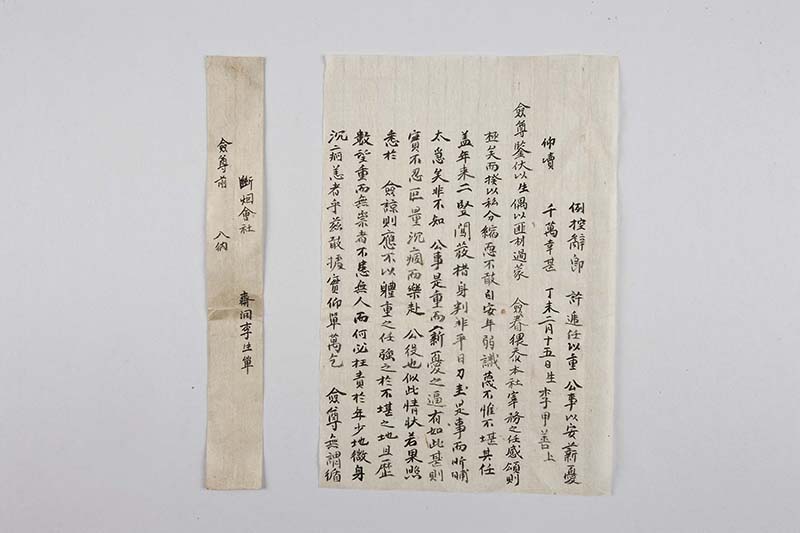 仰瀆
僉尊鑒伏以生偶以匪材過蒙 僉眷猥忝本社宰務之任感領則
極矣而揆以私分縮恧不敢自安年弱識蔑不惟不堪其任
盖年来二竪闖發橷身判非平日刀圭是事而昕晡
太怠矣非不知 公事是重而薪憂之逼有如此甚則
實不忍叵量沉痼而樂赴 公役也似此情狀若果照
悉於 僉諒則應不以體重之任強之於不堪之地且歷
數望重而無祟者不患無人而何必枉責於年少地微身
沉二病恙者乎玆敢據實仰單萬乞 僉尊無謂循
例控辭卽 許遞任以重 公事以安薪憂
千萬幸甚 丁未二月十五日生李甲善上
壽洞李生單
斷烟會社
僉尊前 入納